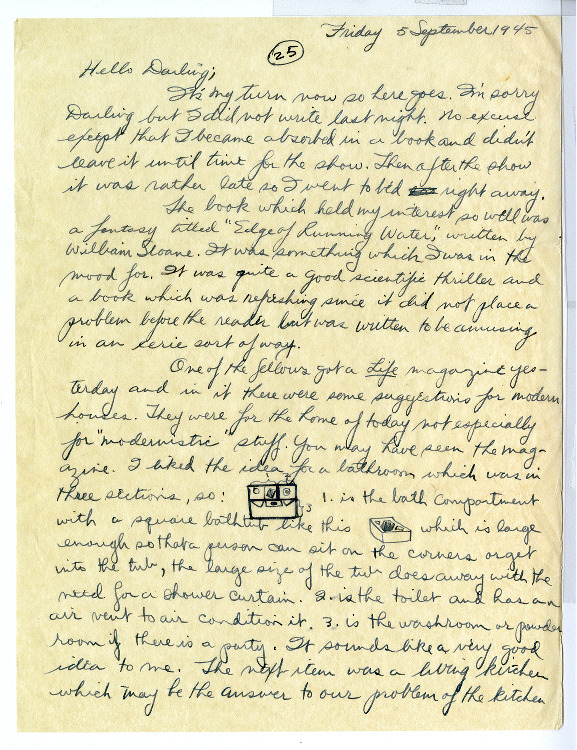 Friday 5 September 1945
25
Hello Darling;
It's my turn now so here goes. I'm sorry
Darling but I did not write last night. No excuse
except that I became absorbed in a book and didn't
leave it until time for the show. Then after the show
it was rather late so I went to bed right away.
The book which held my interest so well was
a fantasy titled "Edge of Running Water," written by
William Sloane. It was something which I was in the
mood for. It was quite a good scientific thriller and
a book which was refreshing since it did not place a
problem before the reader but was written to be amusing
in an eerie sort of way.
One of the fellows got a Life magazine yes-
terday and in it there were some suggestions for modern
houses. They were for the home of today not especially
for "modernistic" stuff. You may have seen the mag-
azine. I liked the idea for a bathroom which was in
three sections, so: 1. is the bath compartment
with a square bathtub like this which is large
enough so that a person can sit on the corners or get
into the tub, the large size of the tub does away with the
need for a shower curtain. 2. is the toilet and has an
air vent to air condition it. 3. is the washroom or powder
room if there is a party. It sounds like a very good
idea to me. The next item was a living kitchen
which may be the answer to our problem of the kitchen